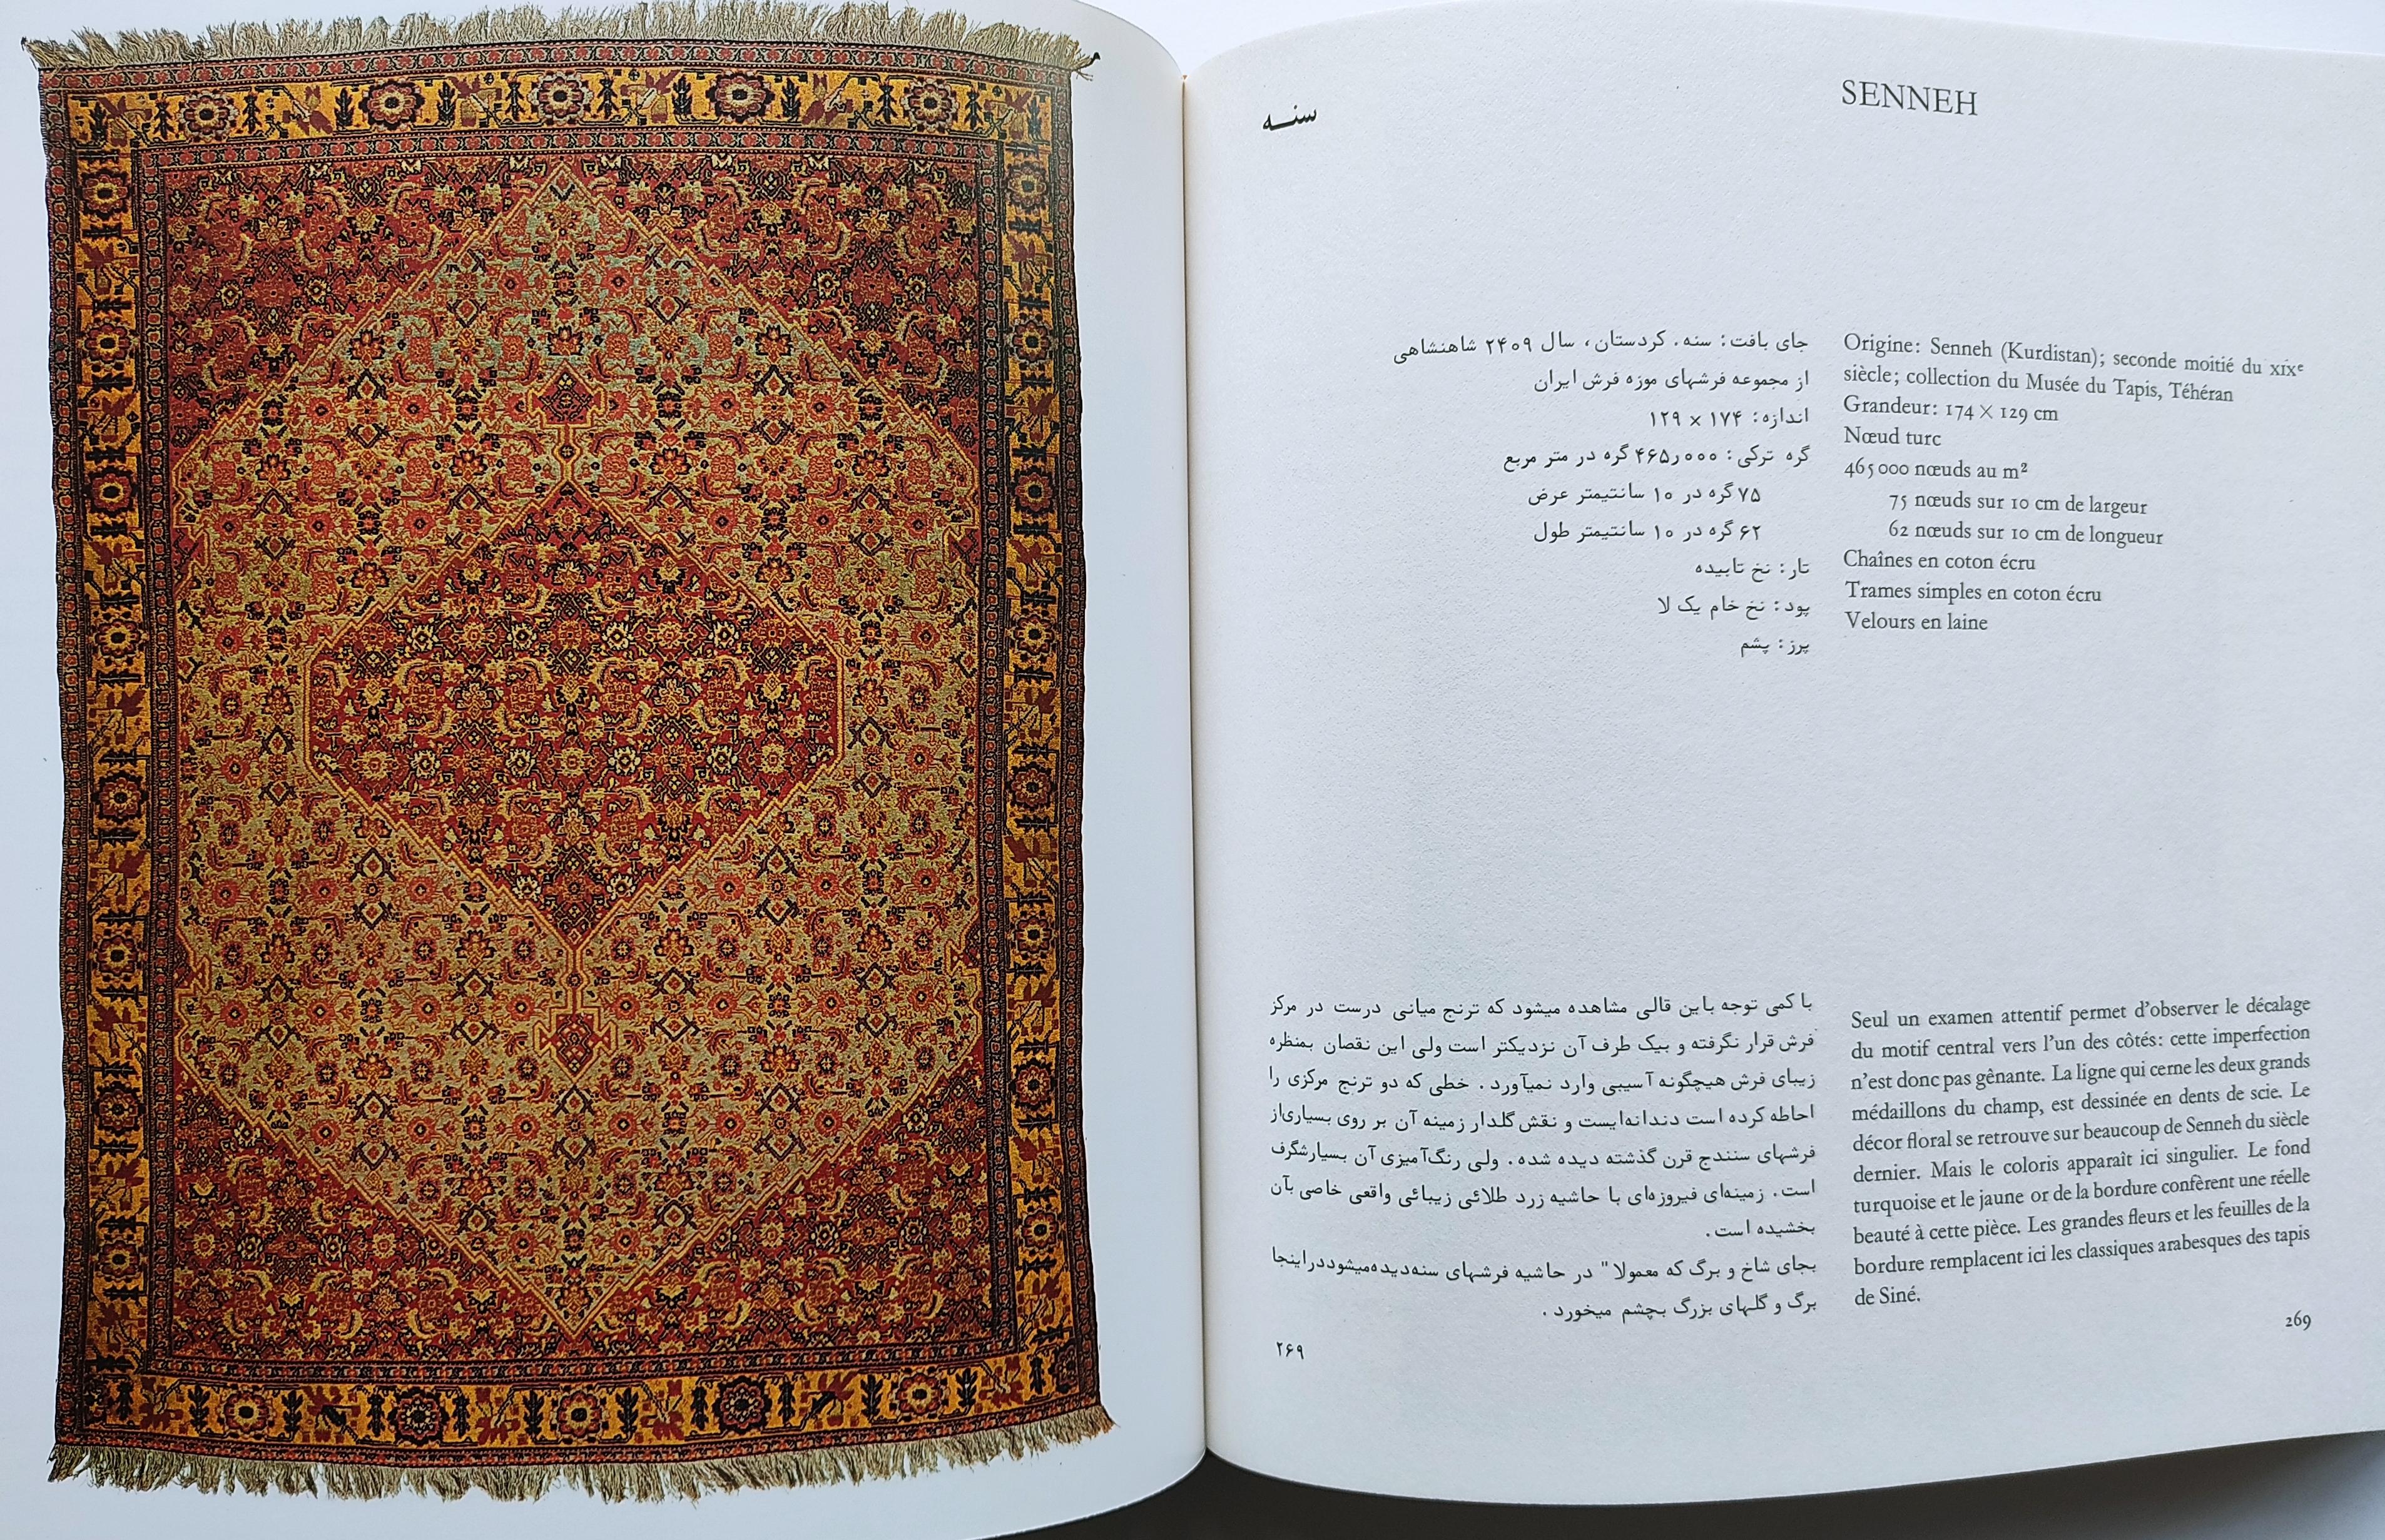 سنه
SENNEH
جای بافت: سنه. کردستان، سال ۲۴۰۹ شاهنشاهی
از مجموعه فرشهای موزه فرش ایران
اندازه: ۱۷۴ × ۱۲۹
گره ترکی: ۴۶۵٫۰۰۰ گره در متر مربع
۷۵ گره در ۱۰ سانتیمتر عرض
۶۲ گره در ۱۰ سانتیمتر طول
تار: نخ تابیده
پود: نخ خام یک لا
پرز: پشم
Origine: Senneh (Kurdistan); seconde moitié du XIXe
siècle; collection du Musée du Tapis, Téhéran
Grandeur: 174 × 129 cm
Nœud turc
465 000 nœuds au m²
75 nœuds sur 10 cm de largeur
62 nœuds sur 10 cm de longueur
Chaînes en coton écru
Trames simples en coton écru
Velours en laine
با کمی توجه باین قالی مشاهده میشود که ترنج میانی درست در مرکز
فرش قرار نگرفته و بیک طرف آن نزدیکتر است ولی این نقصان بمنظره
زیبای فرش هیچگونه آسیبی وارد نمیآورد. خطی که دو ترنج مرکزی را
احاطه کرده است دندانه‌ایست و نقش گلدار زمینه آن بر روی بسیاری از
فرشهای سنندج قرن گذشته دیده شده. ولی رنگ‌آمیزی آن بسیار شگرف
است. زمینه‌ای فیروزه‌ای با حاشیه زرد طلائی زیبائی واقعی خاصی بآن
بخشیده است.
بجای شاخ و برگ که معمولا" در حاشیه فرشهای سنه دیده میشود در اینجا
برگ و گلهای بزرگ بچشم میخورد.
۲۶۹
Seul un examen attentif permet d’observer le décalage
du motif central vers l’un des côtés: cette imperfection
n’est donc pas gênante. La ligne qui cerne les deux grands
médaillons du champ, est dessinée en dents de scie. Le
décor floral se retrouve sur beaucoup de Senneh du siècle
dernier. Mais le coloris apparaît ici singulier. Le fond
turquoise et le jaune or de la bordure confèrent une réelle
beauté à cette pièce. Les grandes fleurs et les feuilles de la
bordure remplacent ici les classiques arabesques des tapis
de Siné.
269